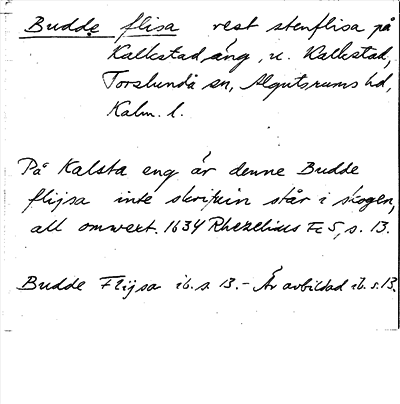 Budde flisa rest stenflisa på
Kalkstad äng, u. Kalkstad,
Torslunda sn, Algutsrums hd,
Kalm. l.
På Kalsta eng är denne Budde
flijsa inte skrifwin står i skogen,
all omwext. 1634 Rhezelius Fc 5, s. 13.
Budde Flijsa ib. s 13. - Är avbildad ib. s. 13.